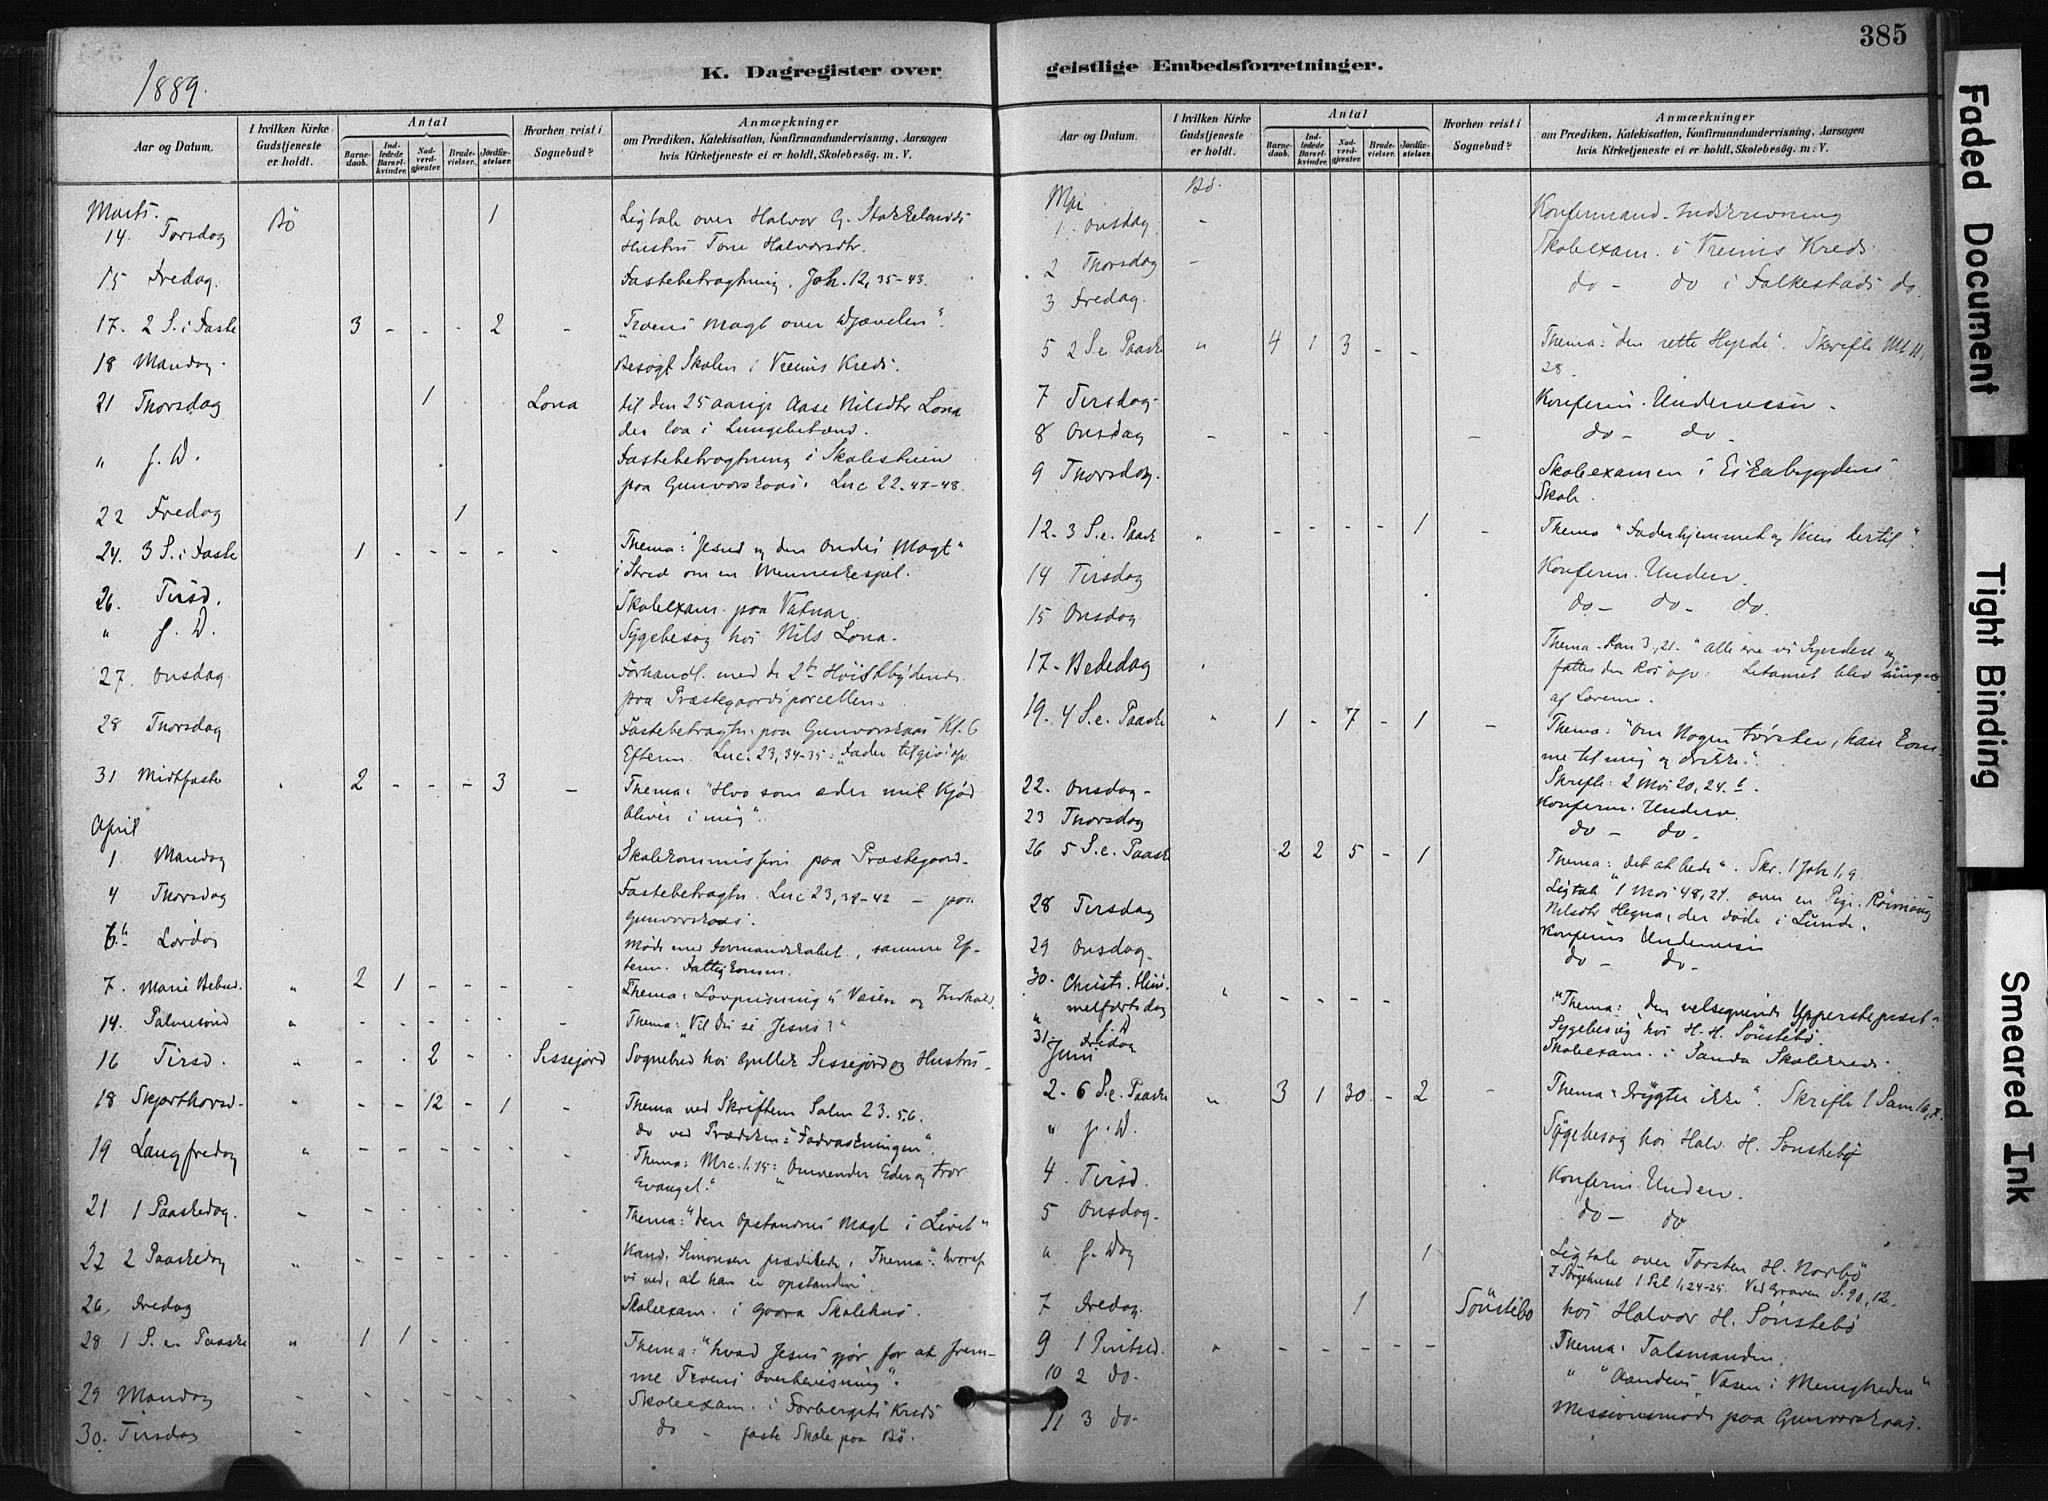 385
1889.
K. Dagregister over
geistlige Embedsforretninger.
Aar og Datum.
I hvilken Kirke Gudstjeneste er holdt.
Antal
Barnedaab.
Indledede Barselkvinder.
Nadverdgjæster.
Brudevielser.
Jordfæstelser.
Hvorhen reist i Sognebud?
Anmærkninger
om Prædiken, Katekisation, Konfirmandundervisning, Aarsagen
hvis Kirketjeneste ei er holdt, Skolebesög. m. V.
Marts.
14. Torsdag Bö 1 Ligtale over Halvor G. Stokkelands
Hustru Tone Halvorsdtr.
15 Fredag. Fastebetragtning. Joh. 12, 35-43.
17. 2 S. i Faste 3 - - - 2 - "Troens Magt over Djævelen".
18 Mandag. Besøgt Skolen i Vreims Kreds.
21 Thorsdag 1 Lona til den 25 aarige Aase Nilsdtr Lona
der laa i Lungebetænd.
" s. D. Fastebetragtning i Skolestuen
paa Gunvorskaas. Luc 22. 47-48.
22 Fredag 1
24. 3 S. i Faste 1 - - - - - Thema: "Jesus og den Ondes Magt"
i Stred om en Menneskesjæl.
26. Tirsd. Skoleexam. paa Vatnar.
" s. D. Sygebesøg hos Nils Lona.
27. Onsdag. Forhandl. med de 2de
paa Præstegaardsparcellen.
28 Thorsdag Fastebetragtn. paa Gunvorskaas Kl. 6
Efterm. Luc. 23, 34-35: "Fader tilgiv" osv.
31 Midtfaste 2 - - - 3 - Thema: "Hvo som æder mit Kjød
bliver i mig".
April
1. Mandag Skolekommission paa Præstegaard.
4 Thorsdag Fastebetragtn. Luc 23, 39-42 - paa
Gunvorskaas.
6. Lördag Møde med Formandskabet, samme Ef-
term. Fattigkomm.
7. Mariæ Bebud. " 2 1 - - - - Thema: Lovprisning i Væsen og Indhold.
14. Palmesönd " - - - - - - Thema: "Vil du se Jesus?"
16 Tirsd. " - - 2 - - Sissejord Sognebud hos Gullek Sissejord og Hustru.
18 Skjærthorsd. " - - 12 - 1 - Thema ved Skriftem Salm 23. 5, 6.
do ved Prædiken: "Fodvaskningen".
19 Langfredag " - - - - - - Thema: Mrc. 1, 15: "Omvender Eder og tror
Evangel."
21 1 Paaskedag. - - - - - - - Thema: "den Opstandnes Magt i Livet"
22 2 Paaskedag " - - - - - Kand. Simonsen prædikede, Thema: "hvoraf
vi ved, at han er opstanden".
26. Fredag Skoleexam. i Gvara Skolehus.
28 1 S. e. Paaske " 1 1 - - - Thema: "hvad Jesus gjør for at frem-
me Troens Overbevisning".
29 Mandag Skoleexam. i Forbergets Kreds
30. Tirsdag - do - faste Skole paa Bö.
Aar og Datum.
I hvilken Kirke Gudstjeneste er holdt.
Antal
Barnedaab.
Indledede Barselkvinder.
Nadverdgjæster.
Brudevielser.
Jordfæstelser.
Hvorhen reist i Sognebud?
Anmærkninger
om Prædiken, Katekisation, Konfirmandundervisning, Aarsagen
hvis Kirketjeneste ei er holdt, Skolebesög. m. V.
Mai Bö.
1 Onsdag - Konfirmand-Indskrivning
2 Thorsdag - Skoleexam. i Vreims Kreds.
3 Fredag. do - do i Folkestads do.
5 2 S. e. Paaske " 4 1 3 - - Thema: "den rette Hyrde". Skriftl. Mt 11,
28.
7 Tirsdag. Konfirm. Undervisn.
8 Onsdag - - - - - do - do.
9 Thorsdag. Skoleexamen i Eikabygdens
Skole.
12. 3 S. e. Paask " - - - - 1 - Thema "Faderhjemmet og Veien dertil".
14 Tirsdag Konfirm. Underv.
15 Onsdag do - do - do.
17. Bededag Thema. Rom 3, 21. "alle ere vi Syndere og
fattes den Ros" osv. Litaniet blev
af Lærerne.
19. 4 S. e. Paaske " 1 - 7 - 1 - Thema: "Om Nogen tørster, han kom-
me til mig og drikke".
Skriftl: 2 Mos 20, 24. b.
22. Onsdag - Konfirm. Underv.
23 Thorsdag do - do.
26 5 S. e. Paaske 2 2 5 - 1 Thema: "det at bede". Skr. 1 Joh 1, 9.
Ligtale 1 Mos 48, 21. over en Pige
Nilsdtr Hegna, der døde i Lunde.
28 Tirsdag Konfirms Undervisn
29 Onsdag. do - do.
30. Christi Him-
melfartsdag " - - - - - "Thema: den velsignende Ypperstepræst".
" s. D Sygebesøg hos H. H. Sönstebö.
31. Fredag Skoleexam. i Sanda Skolekreds.
Juni
2. 6 S. e. Paaske " 3 1 30 - 2 - Thema "Frygter ikke". Skriftl. 1 Sam 16, 7.
" s. D. Sygebesøg hos Halv. H. Sönstebö
4. Tirsd. Konfirm. Underv.
5 Onsdag. do - do.
" s. Dag 1 Ligtale over Torsten H. Norbö
I Sørgehuset 1 Pet 1, 24-25. Ved Graven S. 90, 12.
7 Fredag. 1 Sönstebö hos Halvor H. Sönstebö
9 1 Pintsed. " - - - - - Thema: Talsmanden.
10 2 do. " "Aandens Væsen i Menigheden"
11 3 do. Missionsmøde paa Gunvorskaas.
Faded Document
Tight Binding
Smeared Ink